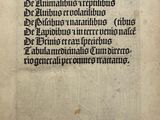 De Animalibus ⁊ reptilibus
De Auibus ⁊ volatilibus
De Piscibus ⁊ natatilibus (ribus
De Lapidibus ⁊ in terre venis nascẽ
De Urinis ⁊ earũ speciebus
Tabula medicinalis Cum directo-
rio generali per omnes tractatus.